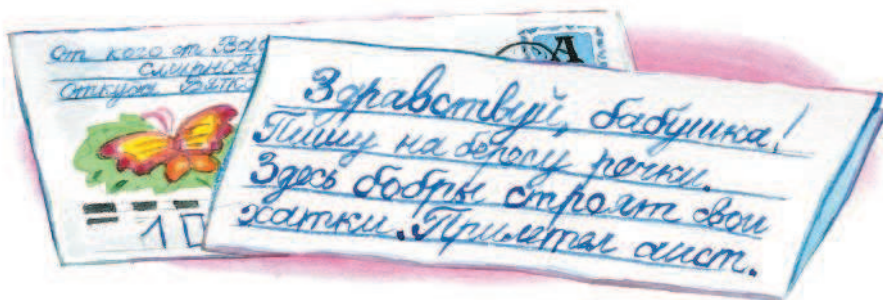 От кого от
Смирнов
Откуда
А
Здравствуй, бабушка!
Пишу на берегу речки.
Здесь бобры строят свои
хатки. Прилетел аист.
1